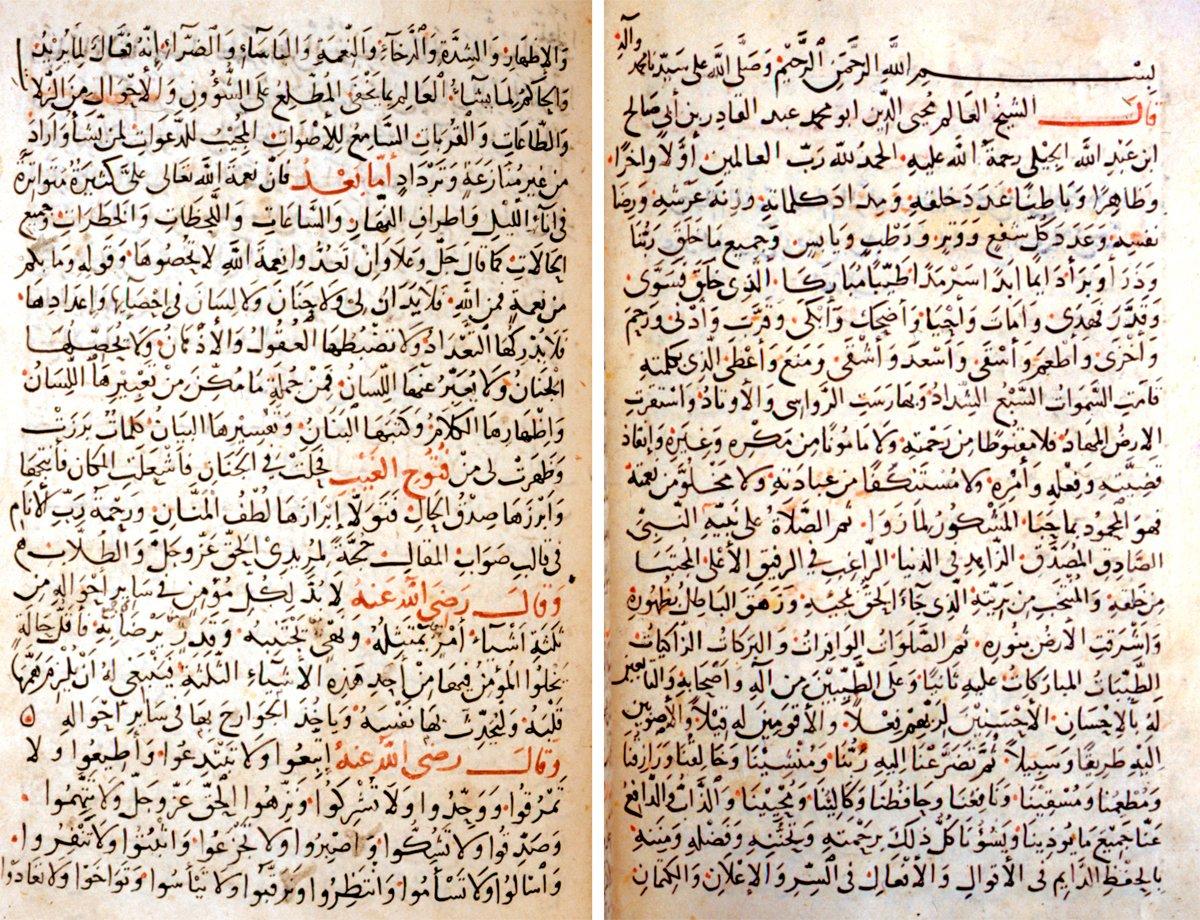 بسم الله الرحمن الرحيم وصلى الله على سيدنا محمد وآله
قال الشيخ العالم محيي الدين ابو محمد عبد القادر بن أبي صالح
ابن عبد الله الجيلي رحمة الله عليه الحمد لله رب العالمين أولا واخرا
وظاهرا وباطنا عدد خلقه ومداد كلماته وزنة عرشه ورضا
نفسه وعدد كل شفع ووتر ورطب ويابس وجميع ما خلق ربنا
وذرأ وبرأ دايما ابدا سرمدا طيبا مباركا الذي خلق فسوى
وقدر فهدى وأمات وأحيا وأضحك وأبكى وقرب وأدنى ورحم
وأخزى وأطعم وأسقى وأسعد وأشقى ومنع وأعطى الذي بكلمته
قامت السموات السبع الشداد وبها رست الرواسي والأوتاد واستقرت
الارض المهاد فلا مقنوطا من رحمته ولا مامونا من مكره وغيره وإنفاذ
قضيته وفعله وأمره ولا مستنكفا من عبادته ولا مخلو من نعمته
فهو المحمود بما حبا المشكور لما زوا ثم الصلاة على نبيه النبي
الصادق المصدق الزاهد في الدنيا الراغب في الرفيق الأعلى المجتبا
من خلقه والمنتجب من بريته الذي جاء الحق بمجيئه وزهق الباطل بظهوره
واشرقت الارض بنوره ثم الصلوات الوافرات والبركات الزاكيات
الطيبات المباركات عليه ثانيا وعلى الطيبين من آله وأصحابه والتابعين
له بالإحسان الأحسنين لربهم فعلا والأقومين له قيلا والأصوبين
اليه طريقا وسبيلا ثم تضرعنا اليه ربنا ومنشينا وخالقنا ورازقنا
ومطعمنا ومسقينا ونافعنا وحافظنا وكالينا ومحيينا والذاب والدافع
عنا جميع ما يوذينا ويسؤنا كل ذلك برحمته وتحننه وفضله ومنته
بالحفظ الدايم في الأقوال والأفعال في السر والإعلان والكتمان
والإظهار والشدة والرخاء والنعمة والبأساء والضراء إنه فعال لما يريد
والحاكم بما يشاء العالم بما يخفى المطلع على الشؤون والأحوال من الزلا
والطاعات والقربات السامع للأصوات المجيب للدعوات لمن يشأ وأراد
من غير منازعة وترداد أما بعد فان نعمة الله تعالى علي كثيرة متواترة
في اناء الليل واطراف النهار والساعات واللحظات والخطرات وجميع
الحالات كما قال جل وعلا وان تعدوا نعمة الله لا تحصوها وقوله وما بكم
من نعمة فمن الله فلا يدان لي ولا جنان ولا لسان في احصائها وإعدادها
فلا يدركها التعداد ولا تضبطها العقول والأذهان ولا يحصيها
الجنان ولا يعبر عنها اللسان فمن جملة ما مكن من تعبيرها اللسان
وإظهارها الكلام وكتبها البنان وتفسيرها البيان كلمات برزت
وظهرت لي من فتوح الغيب فحلت في الجنان فأشغلت المكان فأنتجها
وأبرزها صدق الحال فتولا إبرازها لطف المنان ورحمة رب الأنام
في قالب صواب المقال حجة لمريدي الحق عز وجل والطلاب
وقال رضي الله عنه لا بد لكل مؤمن في ساير أحواله من
ثلثة اشياء أمر يمتثله ونهي يجتنبه وقدر يرضا به فأقل حالة
يخلوا المؤمن فيها من أحد هذه الاشياء الثلثة فينبغي له أن يلزم همها
قلبه وليحدث بها نفسه ويأخذ الجوارح بها في ساير أحواله
وقال رضي الله عنه إتبعوا ولا تبتدعوا وأطيعوا ولا
تمرقوا ووحدوا ولا تشركوا ونزهوا الحق عز وجل ولا تتهموا
وصدقوا ولا تشكوا واصبروا ولا تجزعوا واثبتوا ولا تنفروا
وأسالوا ولا تسأموا وانتظروا وترقبوا ولا تيأسوا وتواخوا ولا تعادوا